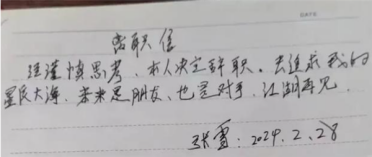 离职信
经谨慎思考，本人决定辞职。去追求我的
星辰大海，亲来是朋友、也是对手，江湖再见
张雪：2024.2.28